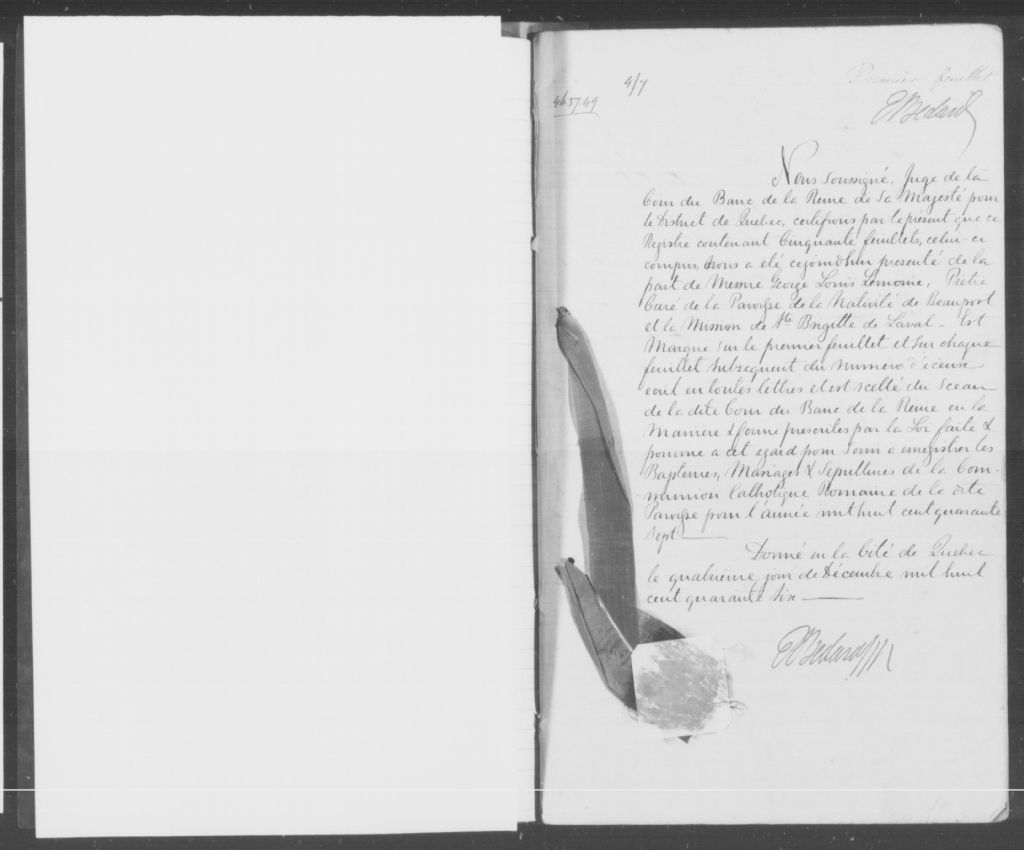 4/7
Premier feuillet
46.5749
E Bedard
Nous Soussigné, Juge de la
Cour du Banc de la Reine de Sa Majesté pour
le District de Quebec, certifions par le présent que ce
Registre contenant Cinquante feuillets, celui-ci
compris, Nous a été cejourdhui presenté de la
part de Messire George Louis Lemoine, Prêtre
Curé de la Paroisse de la Nativité de Beauport
et la Mission de Ste Brigitte de Laval - Est
Marqué sur le premier feuillet et sur chaque
feuillet subsequent du Numéro d'iceux
ecrit en toutes lettres et est scellé du Sceau
de la dite Cour du Banc de la Reine en la
Maniere & forme prescrites par la Loi faite &
pourvue a cet egard pour servir a enregistrer les
Baptemes, Mariages & Sepultures de la Com-
-munion Catholique Romaine de la dite
Paroisse pour l'année mil huit cent quarante
Sept
Donné en la Cité de Quebec
le quatrieme jour de Décembre mil huit
cent quarante Six
E Bedard